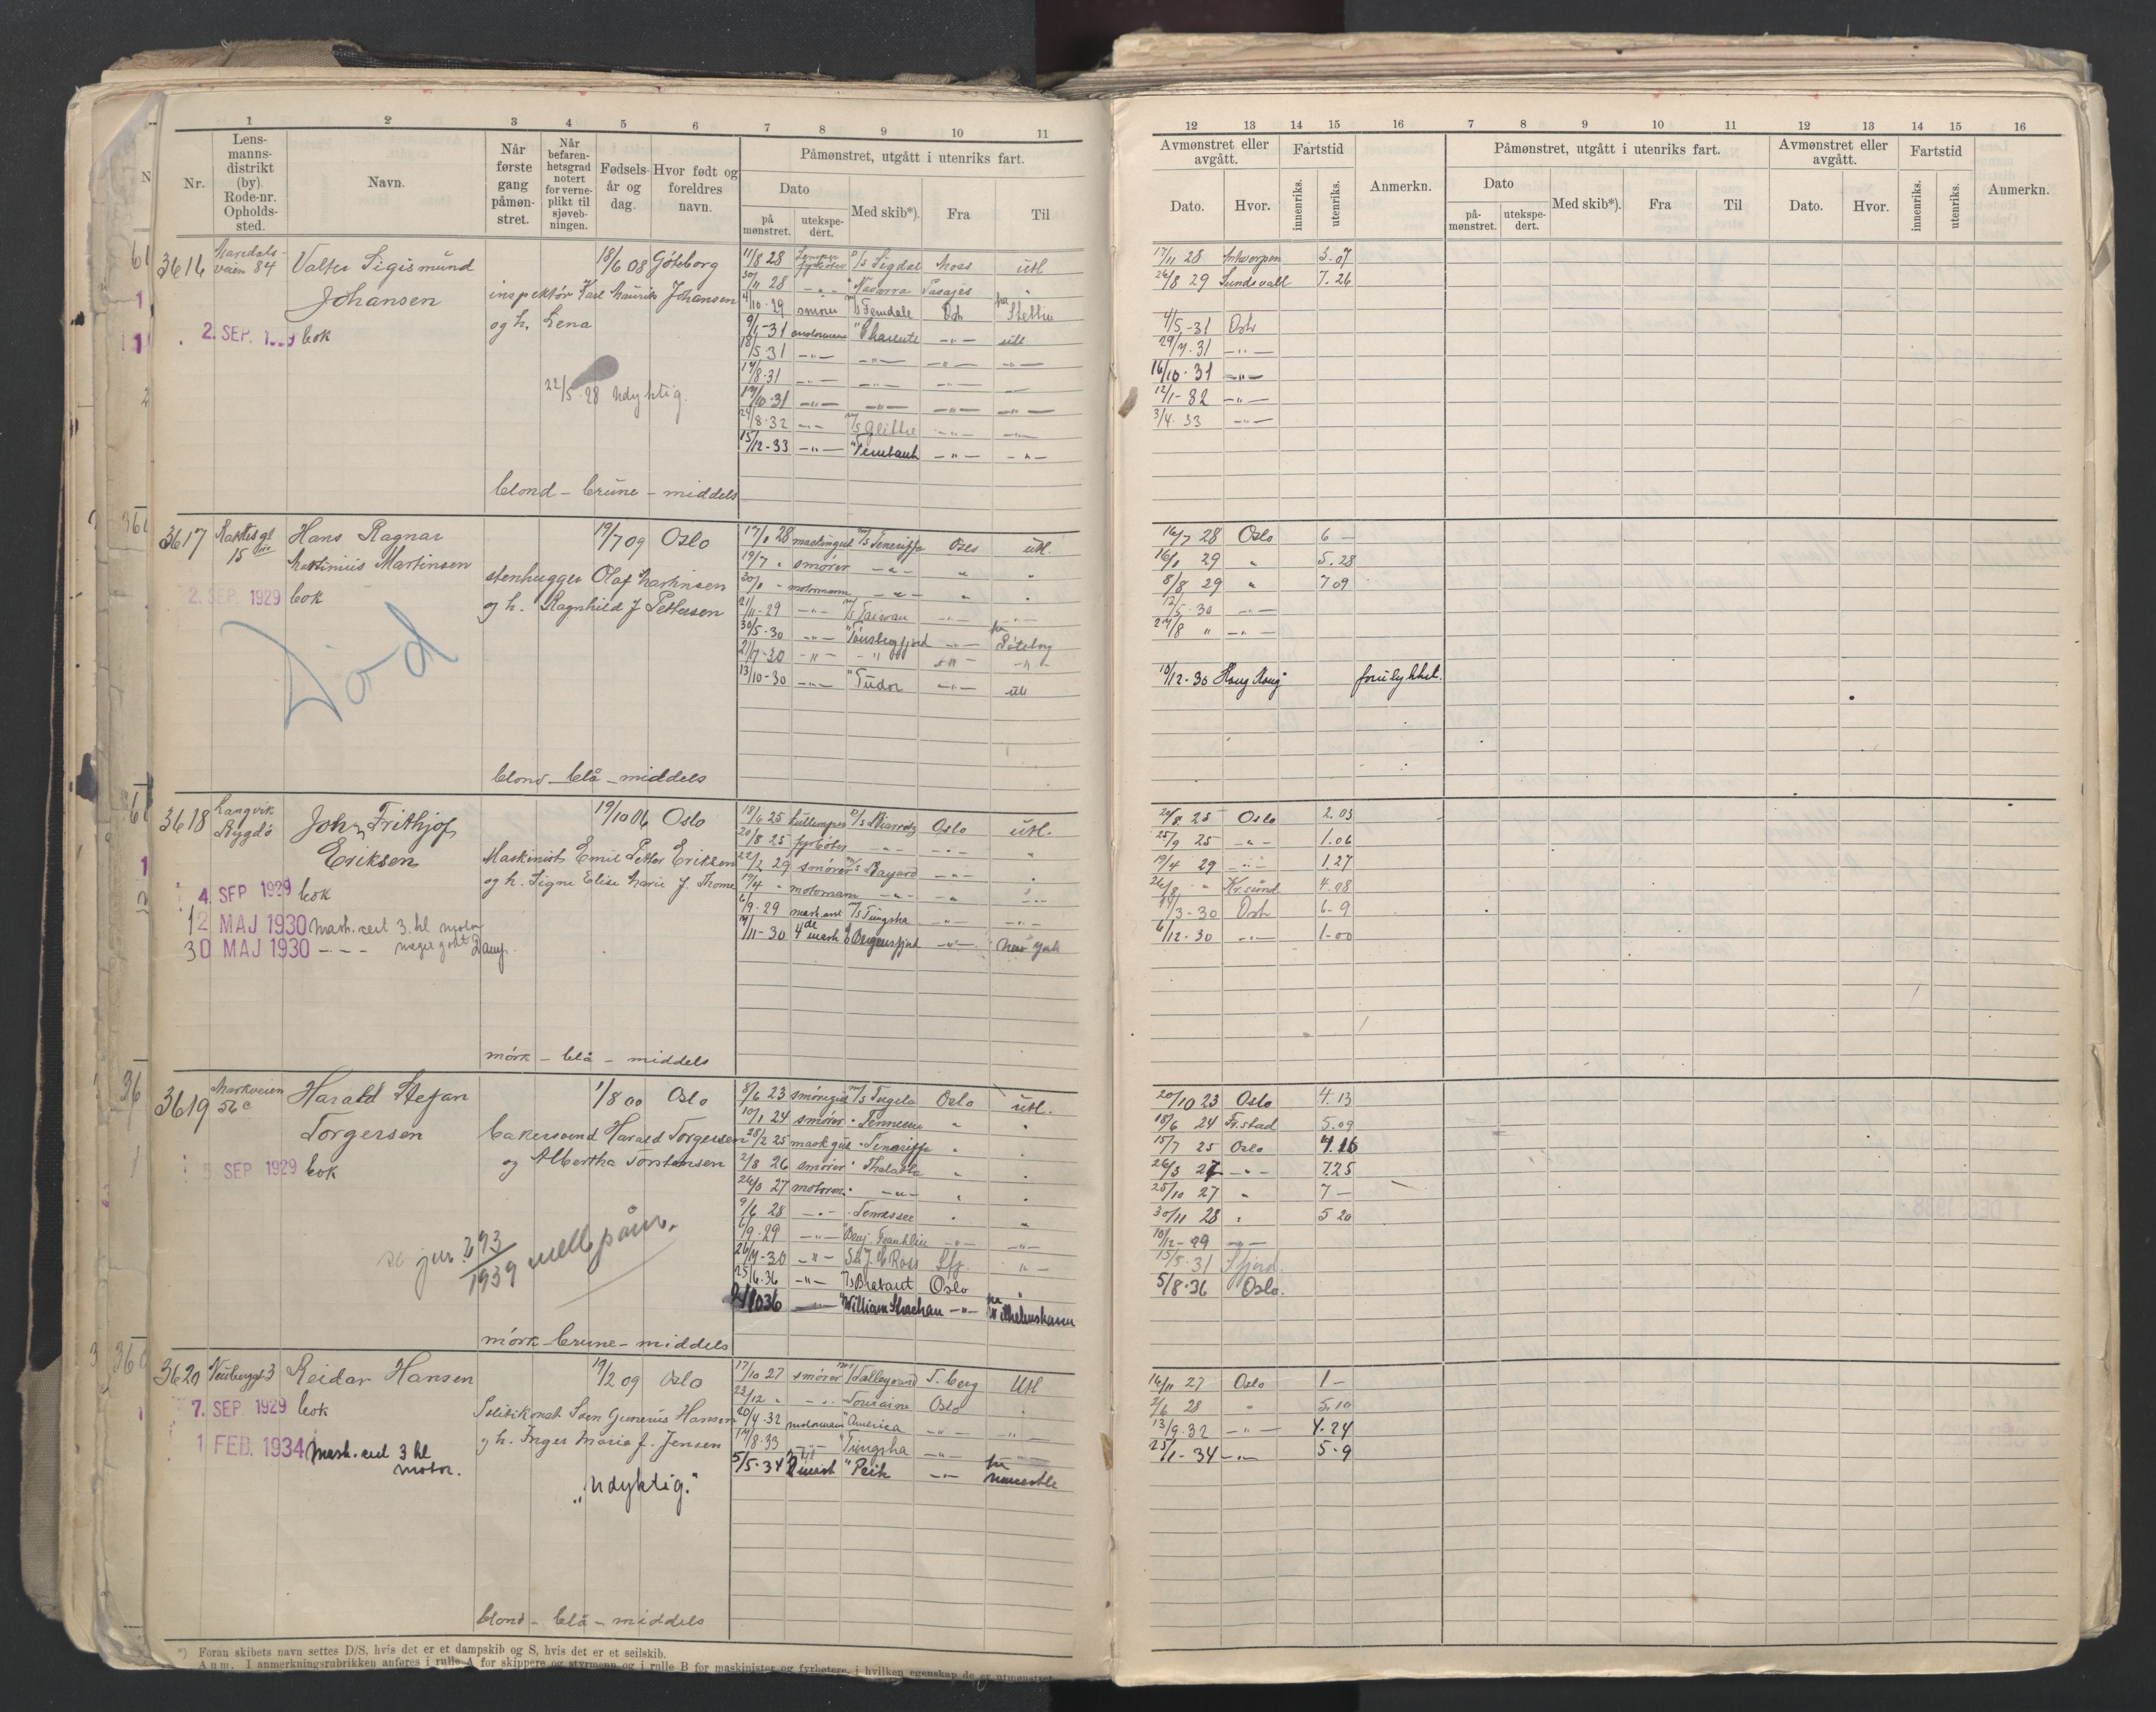 1 2 3 4 5 6 7 8 9 10 11
Nr.
Lens-
manns-
distrikt
(by).
Rode-nr.
Opholds-
sted.
Navn.
Når
første
gang
påmøn-
stret.
Når
befaren-
hetsgrad
notert
for verne-
plikt til
sjøveb-
ningen.
Fødsels-
år og
dag.
Hvor født og
foreldres
navn.
Påmønstret, utgått i utenriks fart.
Dato
på
mønstret.
utekspe-
dert.
Med skib*).
Fra
Til
3616 Maredals-
veien 84 Valter Sigismund
Johansen
18/6 08 Göteborg
inspektør Karl Mauritz Johansen
og h. Lena
2. SEP. 1929 bok
22/5-28 Udyktig.
11/8 28 D/S Sigdal Moss utl
30/11 28 -"- " Navarra Pasajes "
4/10-29 smører M/S Ferndale Oslo Stettin
9/1-31 motormann " Charente -"- utl
18/5 31 -"- -"- -"- -"-
17/8-31 -"- -"- -"- —
17/10-31 -"- -"- -"- -"-
24/8-32 -"- M/S Glittre -"- -"-
15/12-33 -"- -"- -"-
blond - brune - middels
3617 15 Hans Ragnar
Martinius Martinsen
19/7 09 Oslo
stenhugger Olaf Martinsen
og h. Ragnhild f Pettersen
2. SEP. 1929 bok
Död
17/1 28 maskingut M/S Teneriffa Oslo utl.
19/7 " smører -"- " "
30/1 - motormann -"- " "
21/11-29 -"- M/S Taiwan -"- -"-
30/5-30 -"- " Tønsbergfjord -"- Göteborg
21/7-30 -"- -"- -"- -"-
13/10-30 -"- " Tudor -"- utl
blond - blå - middels
3618 Langvik
Bygdø John Frithjof
Eriksen
19/10 06 Oslo
Maskinist Emil Petter Eriksen
og h. Signe Elise Marie f. Thome
4. SEP 1929 bok
12 MAJ 1930 mask. cert 3. kl motor
30 MAJ 1930 - - -
18/6 25 kullemper D/S Biarritz Oslo utl.
20/8 25 fyrbøter -"- -"- "
22/2 29 smører M/S Bayard -"- "
19/4 " motormann -"- -"- -"-
6/9-29 mask.ass M/S Tungsha -"- -"-
7/11-30 4de mask D/S Bergensfjord -"- New York
mörk - blå - middels
3619 Markveien
56c Harald Stefan
Torgersen
1/8 00 Oslo
bakersvend Harald Torgersen
og Albertha Torstensen
5 SEP 1929 bok
se jur. 293/1939
8/6 23 smøregut M/S Tugela Oslo utl.
10/1 24 smører " Tennessee " "
28/2 25 mask gut " Teneriffa " "
2/8 26 smører " Thalatta " "
26/3 27 motorm. -"- " "
9/6 28 -"- " Tennessee " "
6/9-29 -"- " Benj. Franklin -"- -"-
26/9-30 -"- Sir J. C Ross Sfj. "-
25/6.36 -"- M/S Brabant Oslo "
-"- " William Strachan -"- Wilhelmshavn
mörk - brune - middels
3620 Neuberggt 3 Reidar Hansen
19/2 09 Oslo
Politikonst. Sven Gunerius Hansen
og h. Inger Marie f. Jensen
7. SEP. 1929 bok
1 FEB. 1934 Mask. cert 3 kl
motor.
„Udyktig."
17/10 27 smører M/S Talleyrand T. berg Utl
23/12 " -"- " Touraine Oslo "
20/4-32 motormann " America -"- -"-
17/8-33 -"- " Tungsha -"- -"-
5/5-34 2 mask " Peik -"- Newcastle
blond - blå - middels
*) Foran skibets navn settes D/S, hvis det er et dampskib og S, hvis det er et seilskib.
Anm. I anmerkningsrubrikken anføres i rulle A for skippere og styrmenn og i rulle B for maskinister og fyrbøtere, i hvilken egenskap de er utmønstret
12 13 14 15 16 7 8 9 10 11 12 13 14 15 16
Avmønstret eller
avgått.
Fartstid
Dato.
Hvor.
innenriks.
utenriks.
Anmerkn.
Påmønstret, utgått i utenriks fart.
Dato
på-
mønstret.
utekspe-
dert.
Med skib*).
Fra
Til
Avmønstret eller
avgått.
Fartstid
Dato.
Hvor.
innenriks.
utenriks.
Anmerkn.
17/11 28 Antwerpen 3.07
26/8 29 Sundsvall 7.26
4/5-31 Oslo
29/7.31 -"-
16/10.31 -"-
12/1-32 -"-
3/4.33 -"-
16/7 28 Oslo 6 -
16/1 29 " 5.28
8/8 29 " 7 09
12/5-30 -"-
27/8 " -"-
10/12-30 Hong Kong forulykket.
20/8 25 Oslo 2.03
25/9 25 -"- 1.06
19/4 29 -"- 1.27
26/8 " Kr.sund 4.08
14/3-30 Oslo 6-9
6/12-30 -"- 1-00
20/10 23 Oslo 4.13
18/6 24 Fr.stad 5.09
15/7 25 Oslo 4.16
26/3 27 -"- 7.25
25/10 27 " 7 -
30/11 28 " 5 20
10/12-29 -"-
15/5-31 Sfjord.
5/8-36 Oslo.
16/11 27 Oslo 1 -
2/6 28 " 5.10
13/9-32 -"- 4-24
25/1-34 -"- 5-9